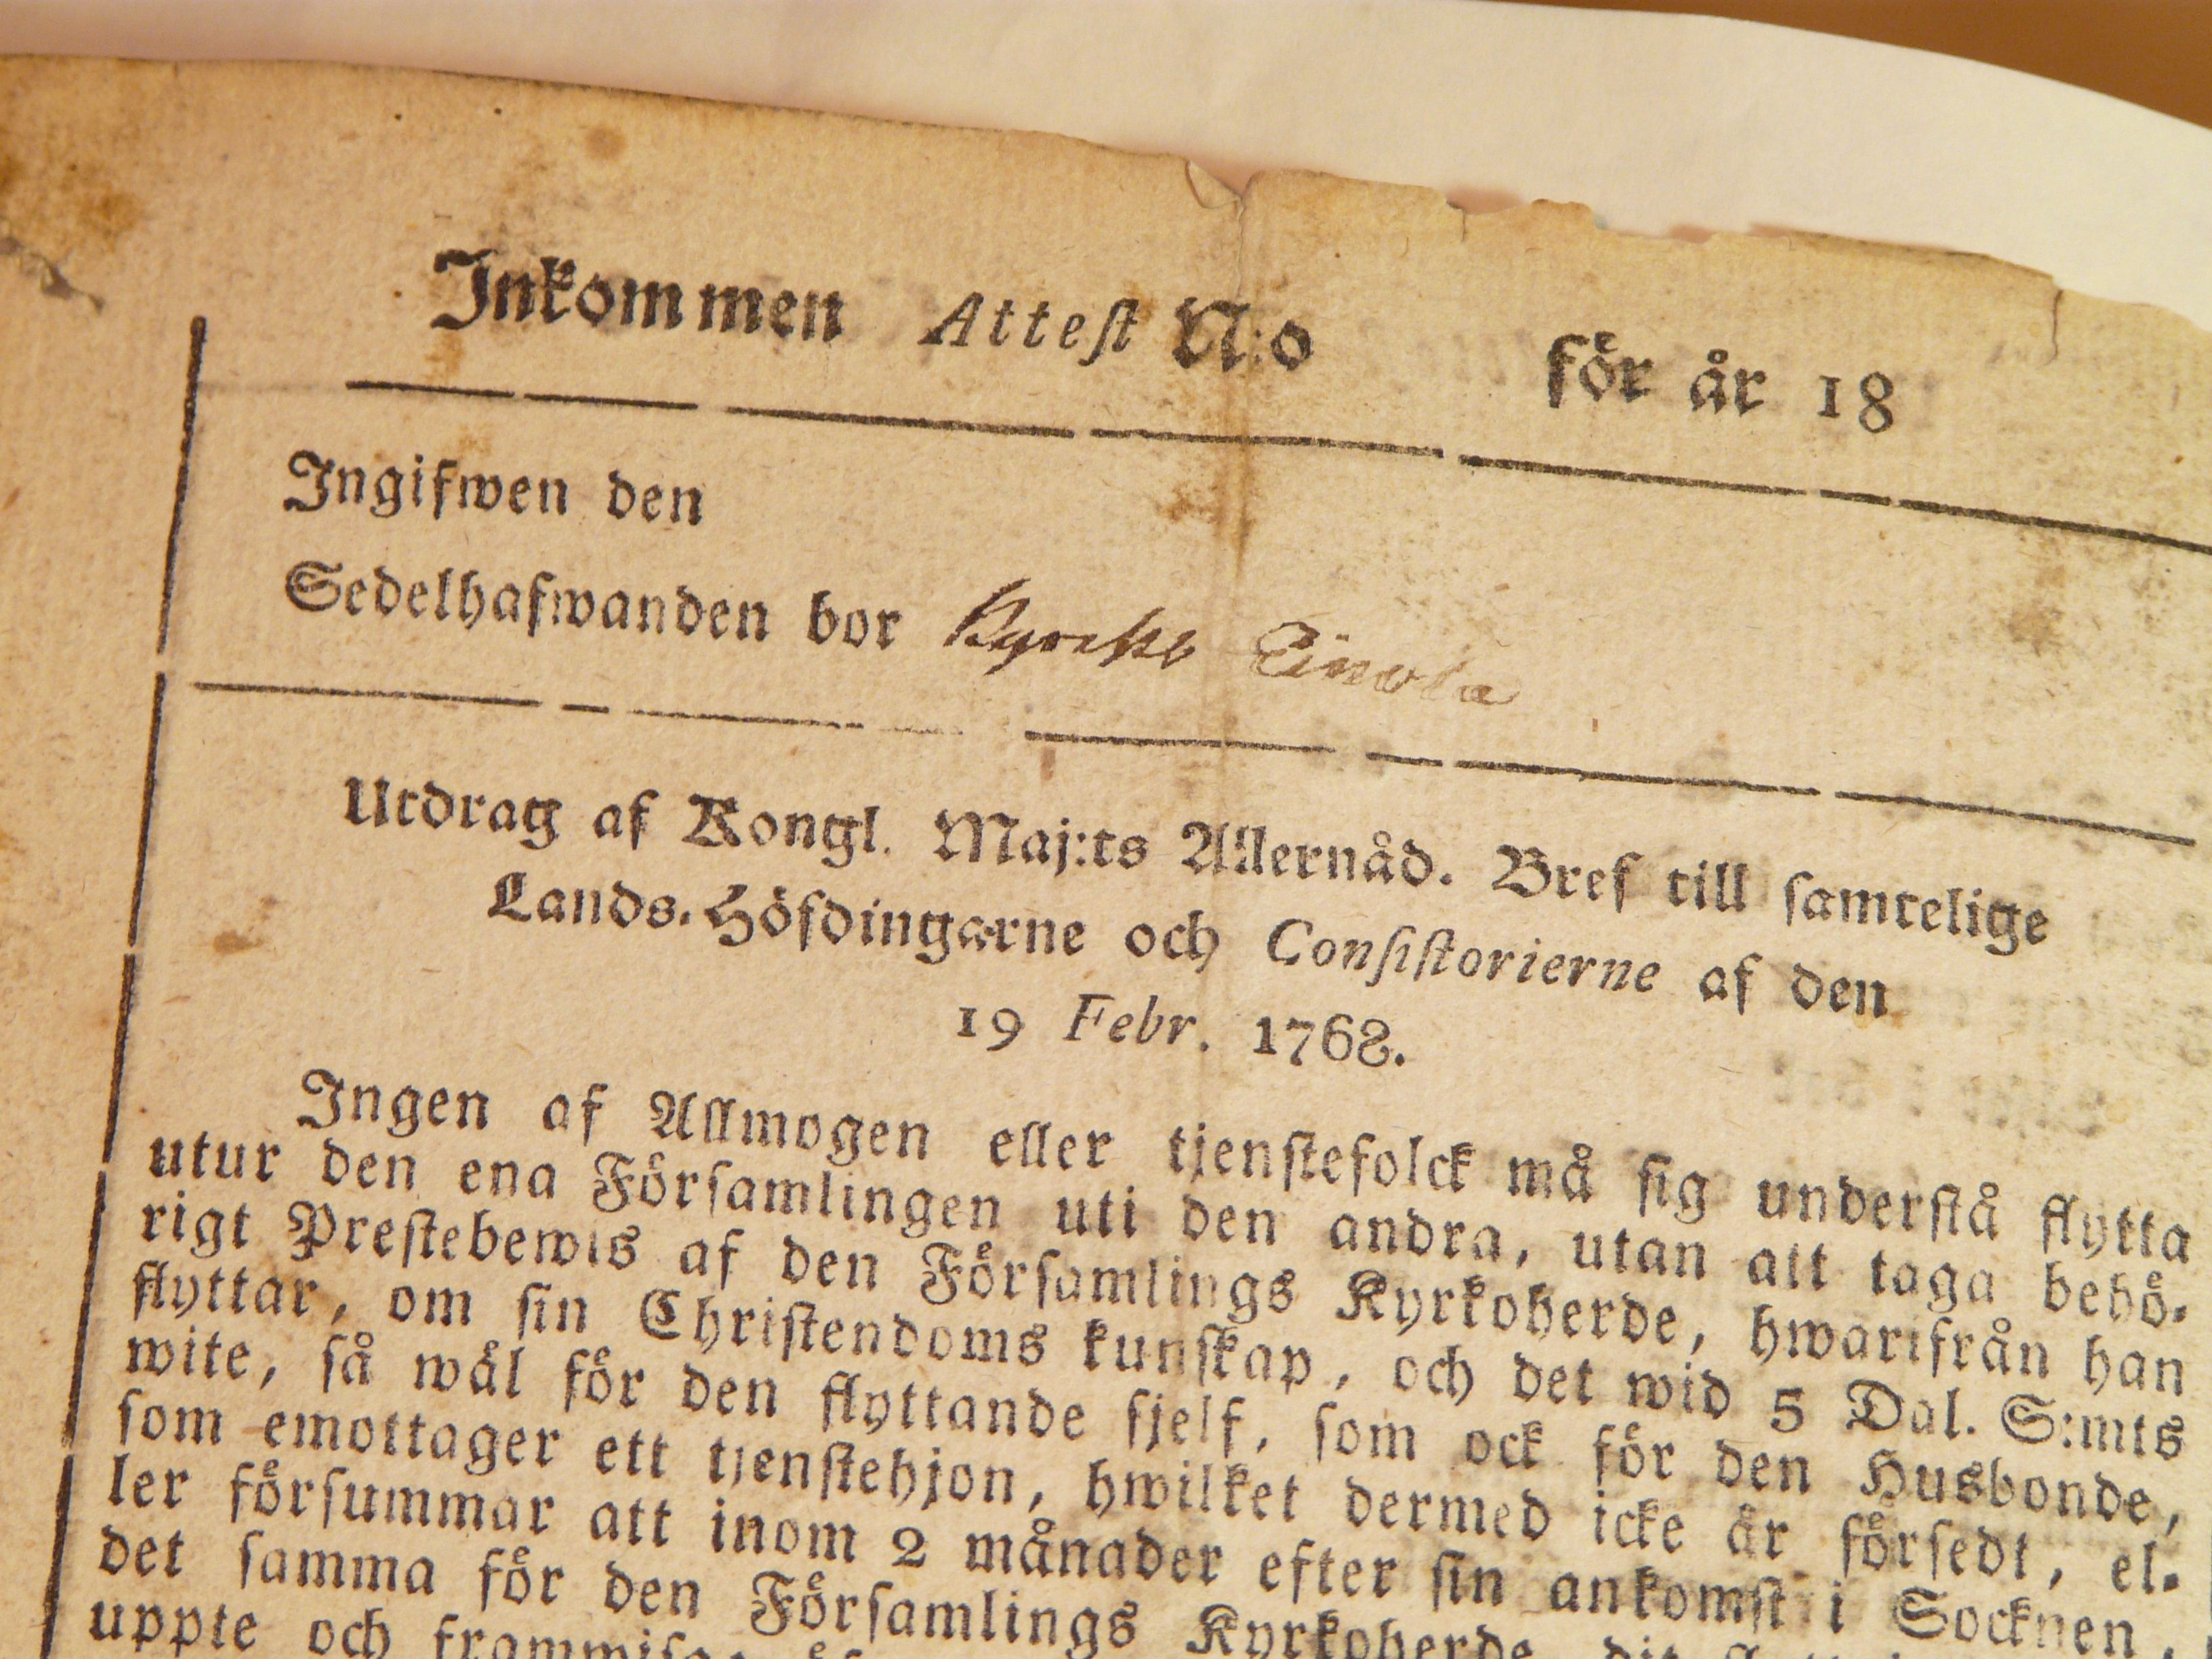 Inkommen Attest N:o för år 18
Ingifwen den
Sedelhafwanden bor
Utdrag af Kongl. Maj:ts Allernåd. Bref till samtelige
Lands-Höfdingarne och Consistorierne af den
19 Febr. 1768.
Ingen af Allmogen eller tjenstefolck må sig understå flytta
utur den ena Församlingen uti den andra, utan att taga behö-
rigt Prestebewis af den Församlings Kyrkoherde, hwarifrån han
flyttar, om sin Christendoms kunskap, och det wid 5 Dal. S:mts
wite, så wäl för den flyttande sjelf, som ock för den Husbonde,
som emottager ett tjenstehjon, hwilket dermed icke är försedt, el-
ler försummar att inom 2 månader efter sin ankomst i Socknen,
det samma för den Församlings Kyrkoherde
uppte och